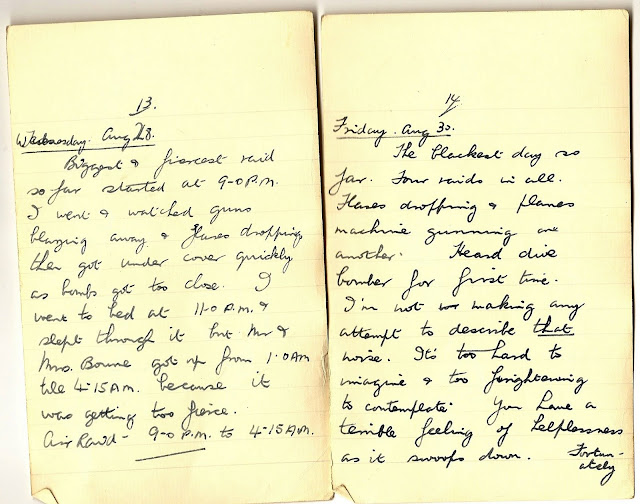 13.
Wednesday. Aug 28.
Biggest & fiercest raid
so far started at 9-0 P.M.
I went & watched guns
blazing away & flares dropping
then got under cover quickly
as bombs got too close. I
went to bed at 11.0 P.M. &
slept through it but Mr &
Mrs. Bourne got up from 1.0 AM
till 4-15 A.M. because it
was getting too fierce.
Air Raid - 9-0 P.M. to 4-15 A.M.
14
Friday. Aug 30.
The blackest day so
far. Four raids in all.
Flares dropping & planes
machine gunning one
another. Heard dive
bomber for first time.
I'm not making any
attempt to describe that
noise. It's too hard to
imagine & too frightening
to contemplate. You have a
terrible feeling of helplessness
as it swoops down. Fortun-
ately